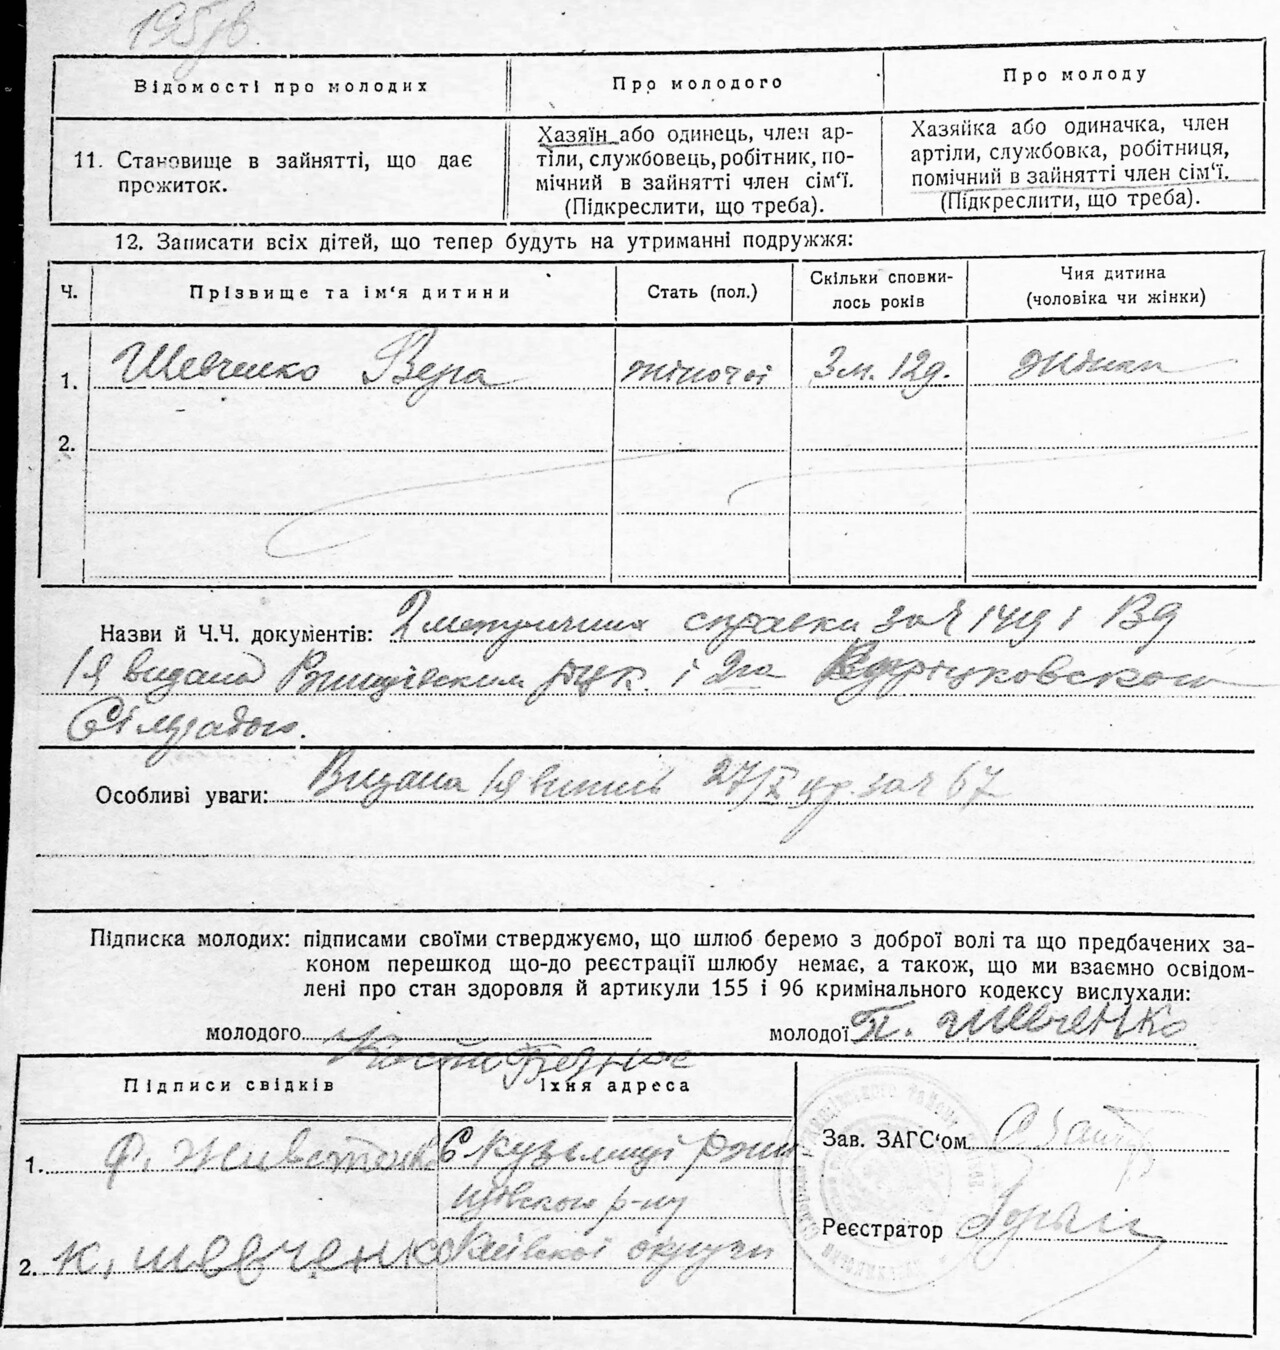 Відомості про молодих
Про молодого
Про молоду
11. Становище в зайнятті, що дає
прожиток.
Хазяїн або одинець, член ар-
тіли, службовець, робітник, по-
мічний в зайнятті член сім'ї.
(Підкреслити, що треба).
Хазяйка або одиначка, член
артіли, службовка, робітниця,
помічний в зайнятті член сім'ї.
(Підкреслити, що треба).
12. Записати всіх дітей, що тепер будуть на утриманні подружжя:
Ч.
Прізвище та ім'я дитини
Стать (пол.)
Скільки сповни-
лось років
Чия дитина
(чоловіка чи жінки)
1. Шевченко Вера жіночої 3 м. 12 д. жінки
2.
Назви й Ч.Ч. документів: 2 метричних справки за ч і
1я видана і 2га
Сільрадою.
Особливі уваги: Видана 27/X ц.р. за ч 67
Підписка молодих: підписами своїми стверджуємо, що шлюб беремо з доброї волі та що предбачених за-
коном перешкод що-до реєстрації шлюбу немає, а також, що ми взаємно освідом-
лені про стан здоровля й артикули 155 і 96 кримінального кодексу вислухали:
молодого
молодої П. Шевченко
Підписи свідків
Їхня адреса
1. Ф.
с Кузьминці Ржи-
щівского р-ну
Київскої округи
2. К. Шевченко
Зав. ЗАГС'ом
Реєстратор